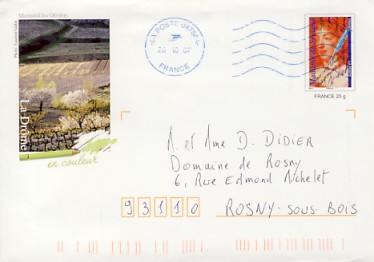 LA POSTE
FRANCE
FRANCE 20 g
La Drôme
en couleur
M. et Mme D. DIDIER
Domaine de Rosny
6, Rue Edmond Michelet
93110 ROSNY-SOUS-BOIS